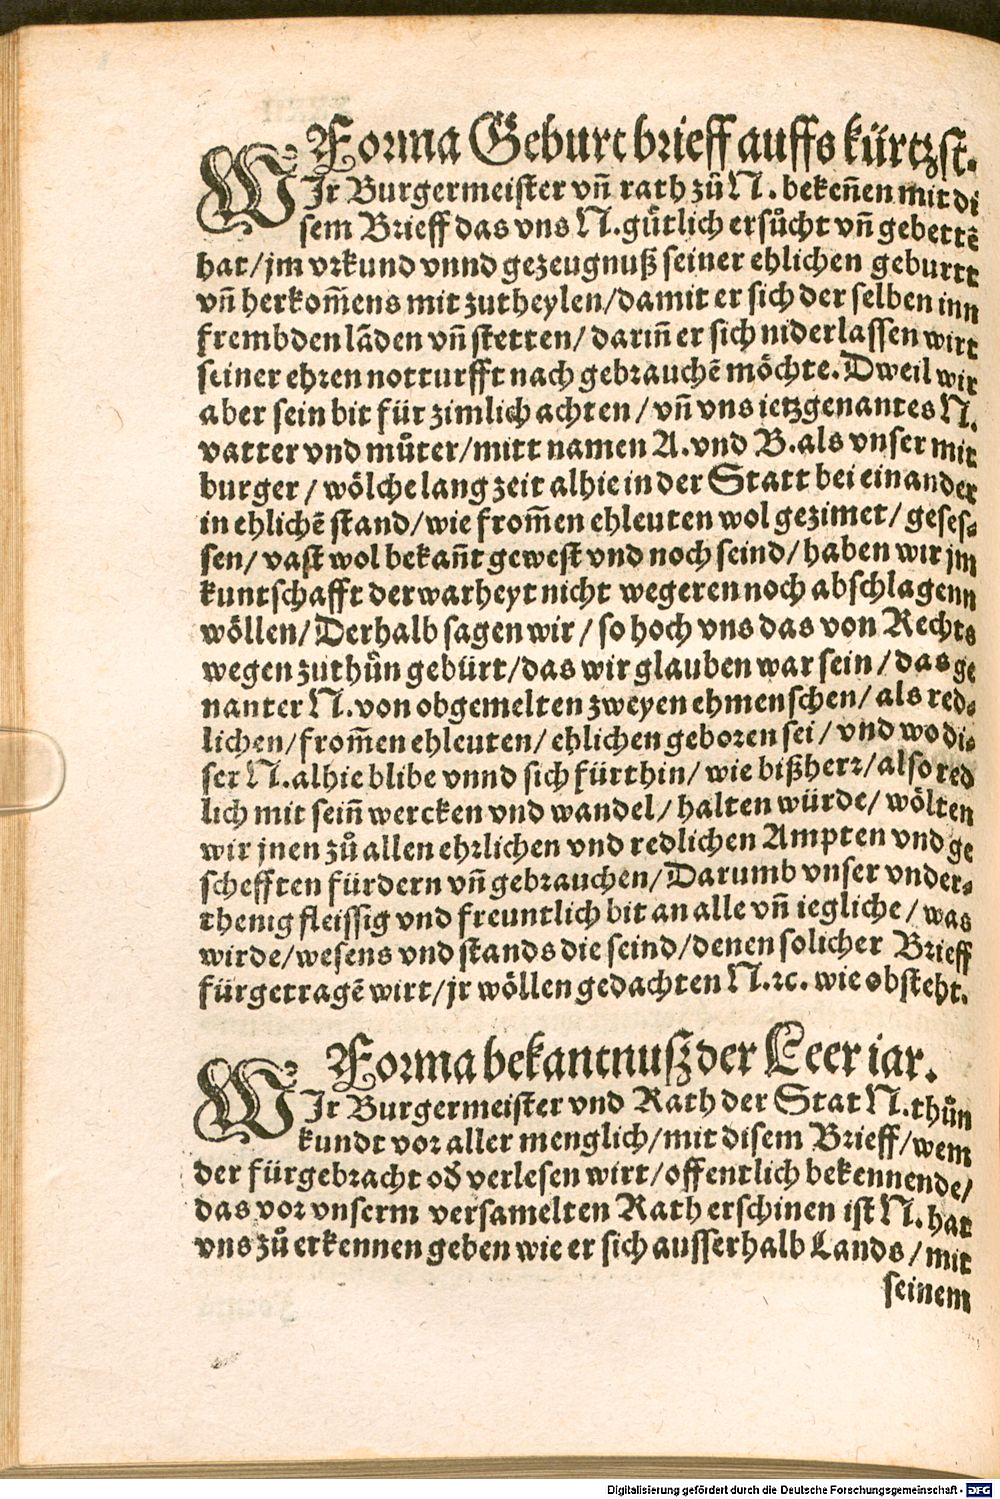 Forma Geburt brieff auffs kürtzst.
WJr Burgermeister vñ rath zů N. bekeñen mit di
sem Brieff das vns N. gütlich ersůcht vñ gebettẽ
hat/ jm vrkund vnnd gezeugnuß seiner ehlichen geburtt
vñ herkom̃ens mit zutheylen/ damit er sich der selben inn
frembden lãden vñ stetten/ dariñ er sich niderlassen wirt
seiner ehren notturfft nach gebrauchẽ möchte. Dweil wir
aber sein bit für zimlich achten/ vñ vns ietzgenantes N.
vatter vnd můter/ mitt namen A. vnd B. als vnser mit
burger/ wölche lang zeit alhie in der Statt bei einander
in ehlichẽ stand/ wie from̃en ehleuten wol gezimet/ geses⸗
sen/ vast wol bekañt gewest vnd noch seind/ haben wir jm
kuntschafft der warheyt nicht wegeren noch abschlagenn
wöllen/ Derhalb sagen wir/ so hoch vns das von Rechts
wegen zuthůn gebürt/ das wir glauben war sein/ das ge
nanter N. von obgemelten zweyen ehmenschen/ als red⸗
lichen/ from̃en ehleuten/ ehlichen geboren sei/ vnd wo di⸗
ser N. alhie blibe vnnd sich fürthin/ wie bißherr/ also red
lich mit seiñ wercken vnd wandel/ halten würde/ wölten
wir jnen zů allen ehrlichen vnd redlichen Ampten vnd ge
schefften fürdern vñ gebrauchen/ Darumb vnser vnder⸗
thenig fleissig vnd freuntlich bit an alle vñ iegliche/ was
wirde/ wesens vnd stands die seind/ denen solicher Brieff
fürgetragẽ wirt/ jr wöllen gedachten N. ꝛc. wie obsteht.
Forma bekantnuß der Leer iar.
WJr Burgermeister vnd Rath der Stat N. thůn
kundt vor aller menglich/ mit disem Brieff/ wem
der fürgebracht oď verlesen wirt/ offentlich bekennende/
das vor vnserm versamelten Rath erschinen ist N. hat
vns zů erkennen geben wie er sich ausserhalb Lands/ mit
seinem
Digitalisierung gefördert durch die Deutsche Forschungsgemeinschaft - DFG